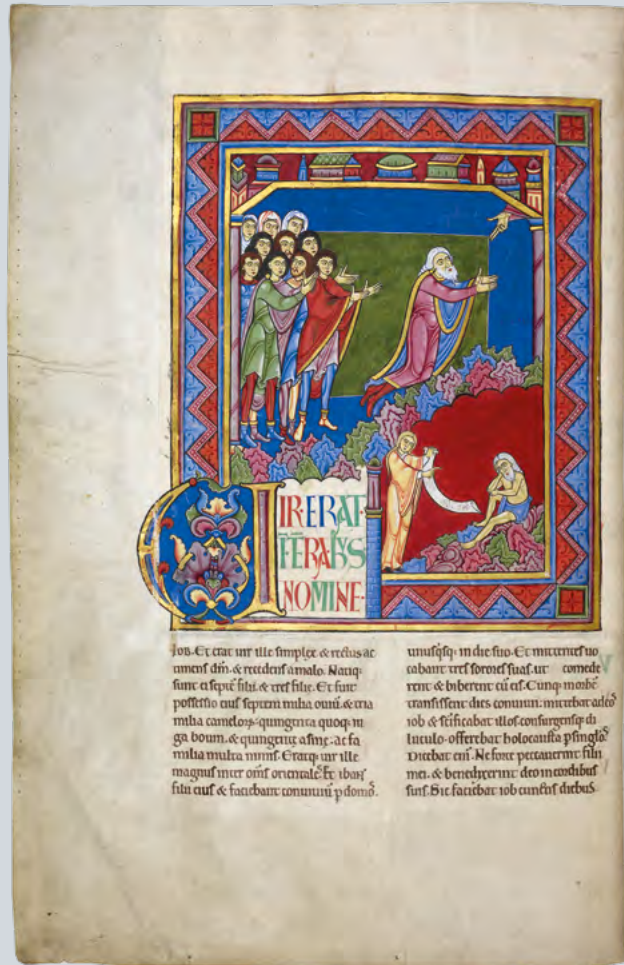 VIR·ERAT·
ĪTERA hYS
NOMINE·
Iob. Et erat uir ille simplex & rectus ac
timens dm̄. & recedens a malo. Natiq;
sunt ei septē filii & tres filie. Et fuit
possessio eius septem milia ouiū. & tria
milia cameloꝝ. quingenta quoq; iu
ga boum. & quingente asine. ac fa
milia multa nimis. Eratq; uir ille
magnus inter om̄s orientales. Et ibant
filii eius & faciebant conuiuiū ꝑ domos.
unusqsq; in die suo. Et mittentes uo
cabant tres sorores suas. ut comede
rent & biberent cū eis. Cunq; in orbē
transissent dies conuiuii. mittebat ad eos
iob & sc̄ificabat illos. consurgensq; di
luculo. offerebat holocausta ꝑ singlos.
Dicebat eni. Ne forte peccauerint filii
mei. & benedixerint deo in cordibus
suis. Sic faciebat iob cunctis diebus.